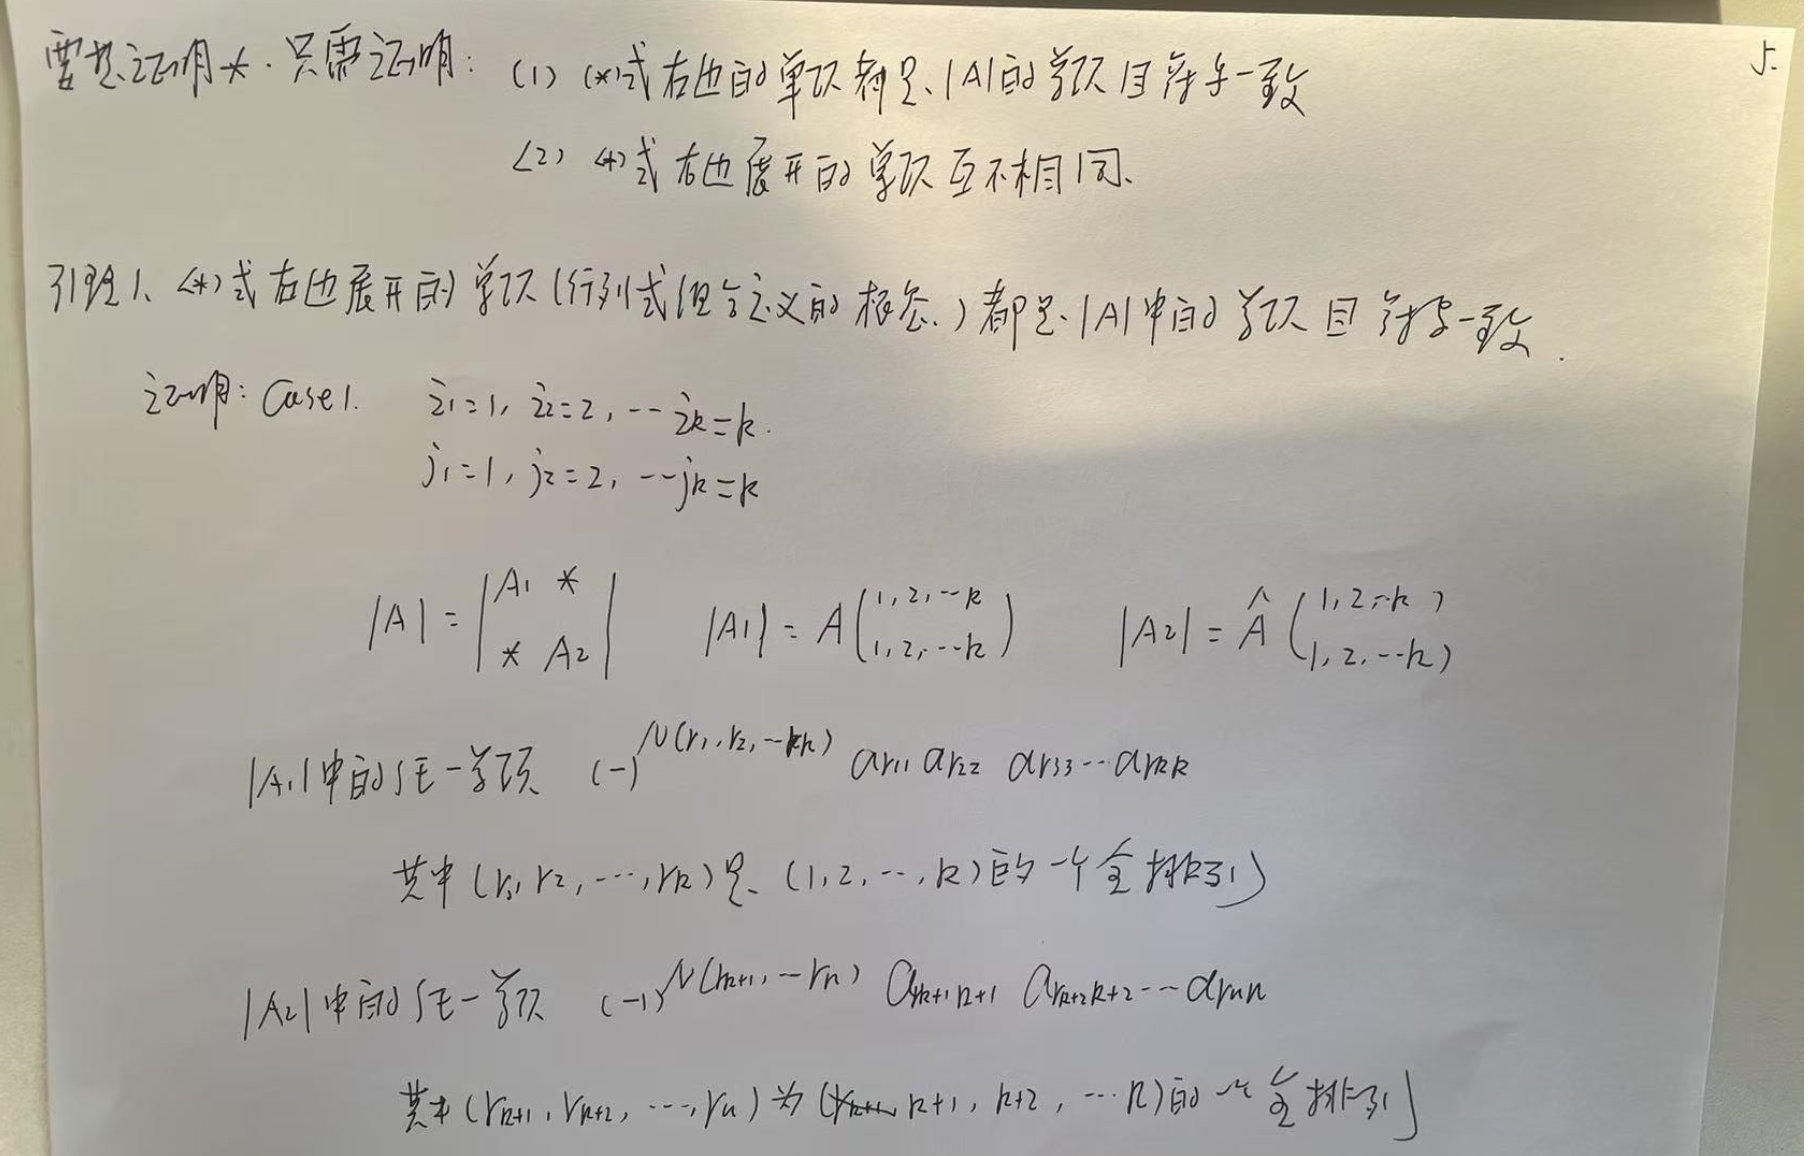 要想证明*. 只需证明: (1) (*)式右边的单项都是|A|的单项且符号一致
5.
(2) (*)式右边展开的单项互不相同.
引理1、(*)式右边展开的单项(行列式组合定义的概念.)都是|A|中的单项且符号一致.
证明: Case 1. i₁=1, i₂=2, … iₖ=k.
j₁=1, j₂=2, … jₖ=k
|A| = |A₁ * ; * A₂| |A₁| = A(1,2,…k ; 1,2,…k) |A₂| = Â(1,2,…k ; 1,2,…k)
|A₁|中的任一单项 (-1)^N(r₁,r₂,…rₖ) a_{r₁1} a_{r₂2} a_{r₃3} … a_{rₖk}
其中(r₁,r₂,…,rₖ)是(1,2,…,k)的一个全排列
|A₂|中的任一单项 (-1)^N(rₖ₊₁,…rₙ) a_{rₖ₊₁k+1} a_{rₖ₊₂k+2} … a_{rₙn}
其中(rₖ₊₁,rₖ₊₂,…,rₙ)为(k+1, k+2, … n)的一个全排列